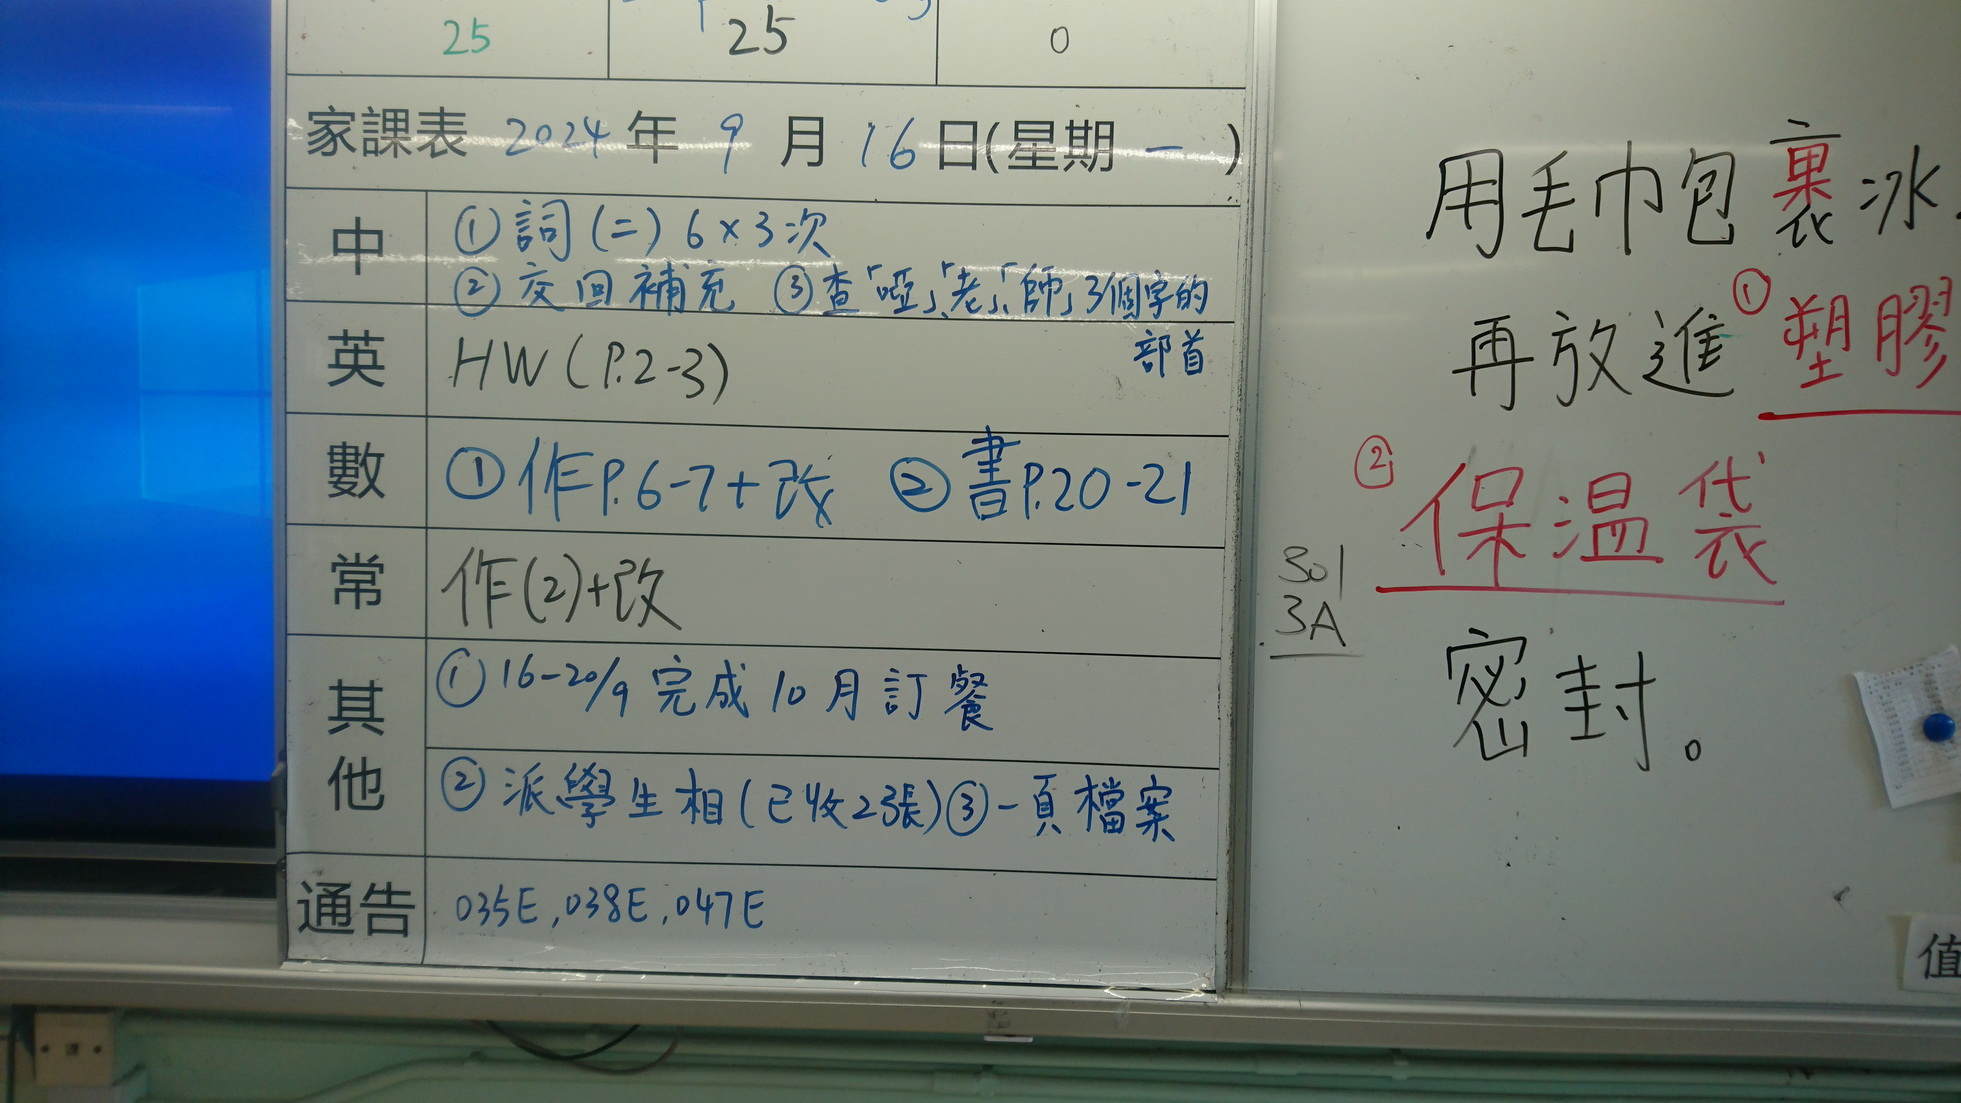 25
25
0
家課表 2024 年 9 月 16 日(星期 一 )
中
①詞(二) 6×3次
②交回補充 ③查「啞」、「老」、「師」3個字的
部首
英
HW(P.2-3)
數
①作P.6-7+改 ②書P.20-21
常
作(2)+改
其他
①16-20/9 完成10月訂餐
②派學生相(已收23張)③一頁檔案
通告
035E,038E,047E
用毛巾包裹冰
再放進①塑膠
②保溫袋
密封。
301
3A
值